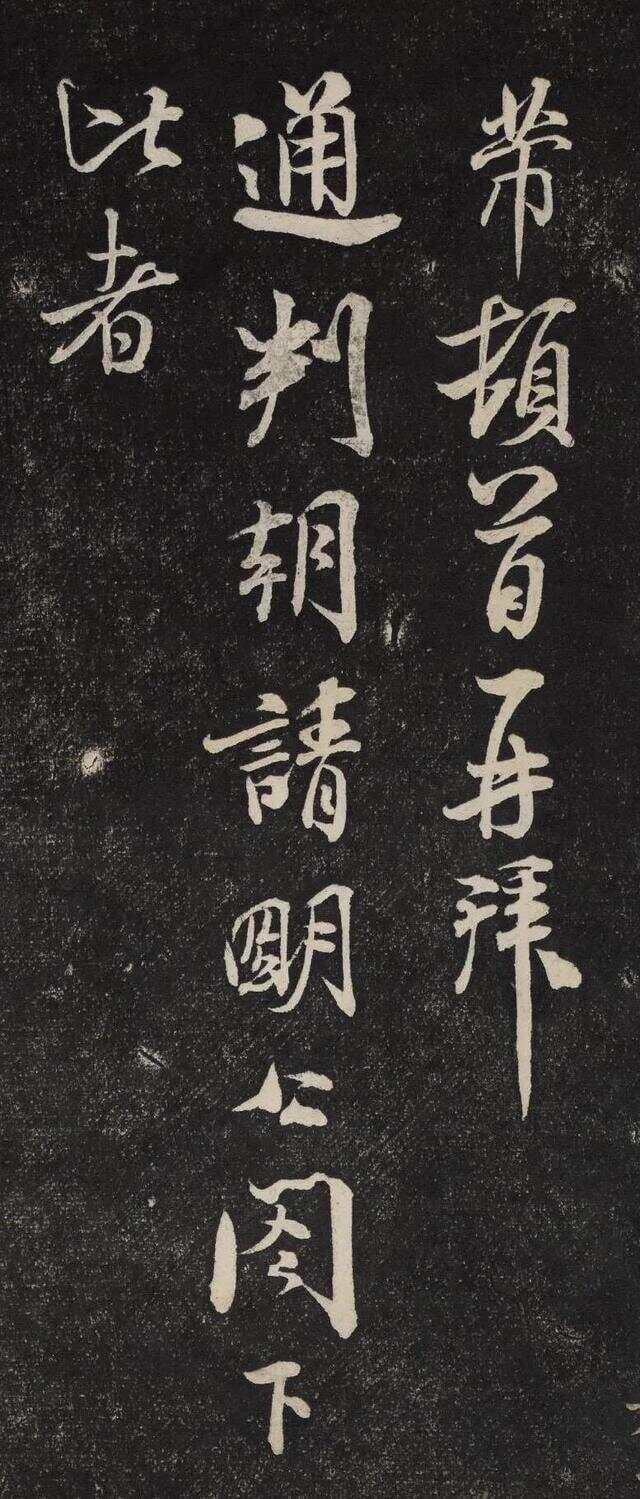 芾頓首再拜
通判朝請明公閣下
此者